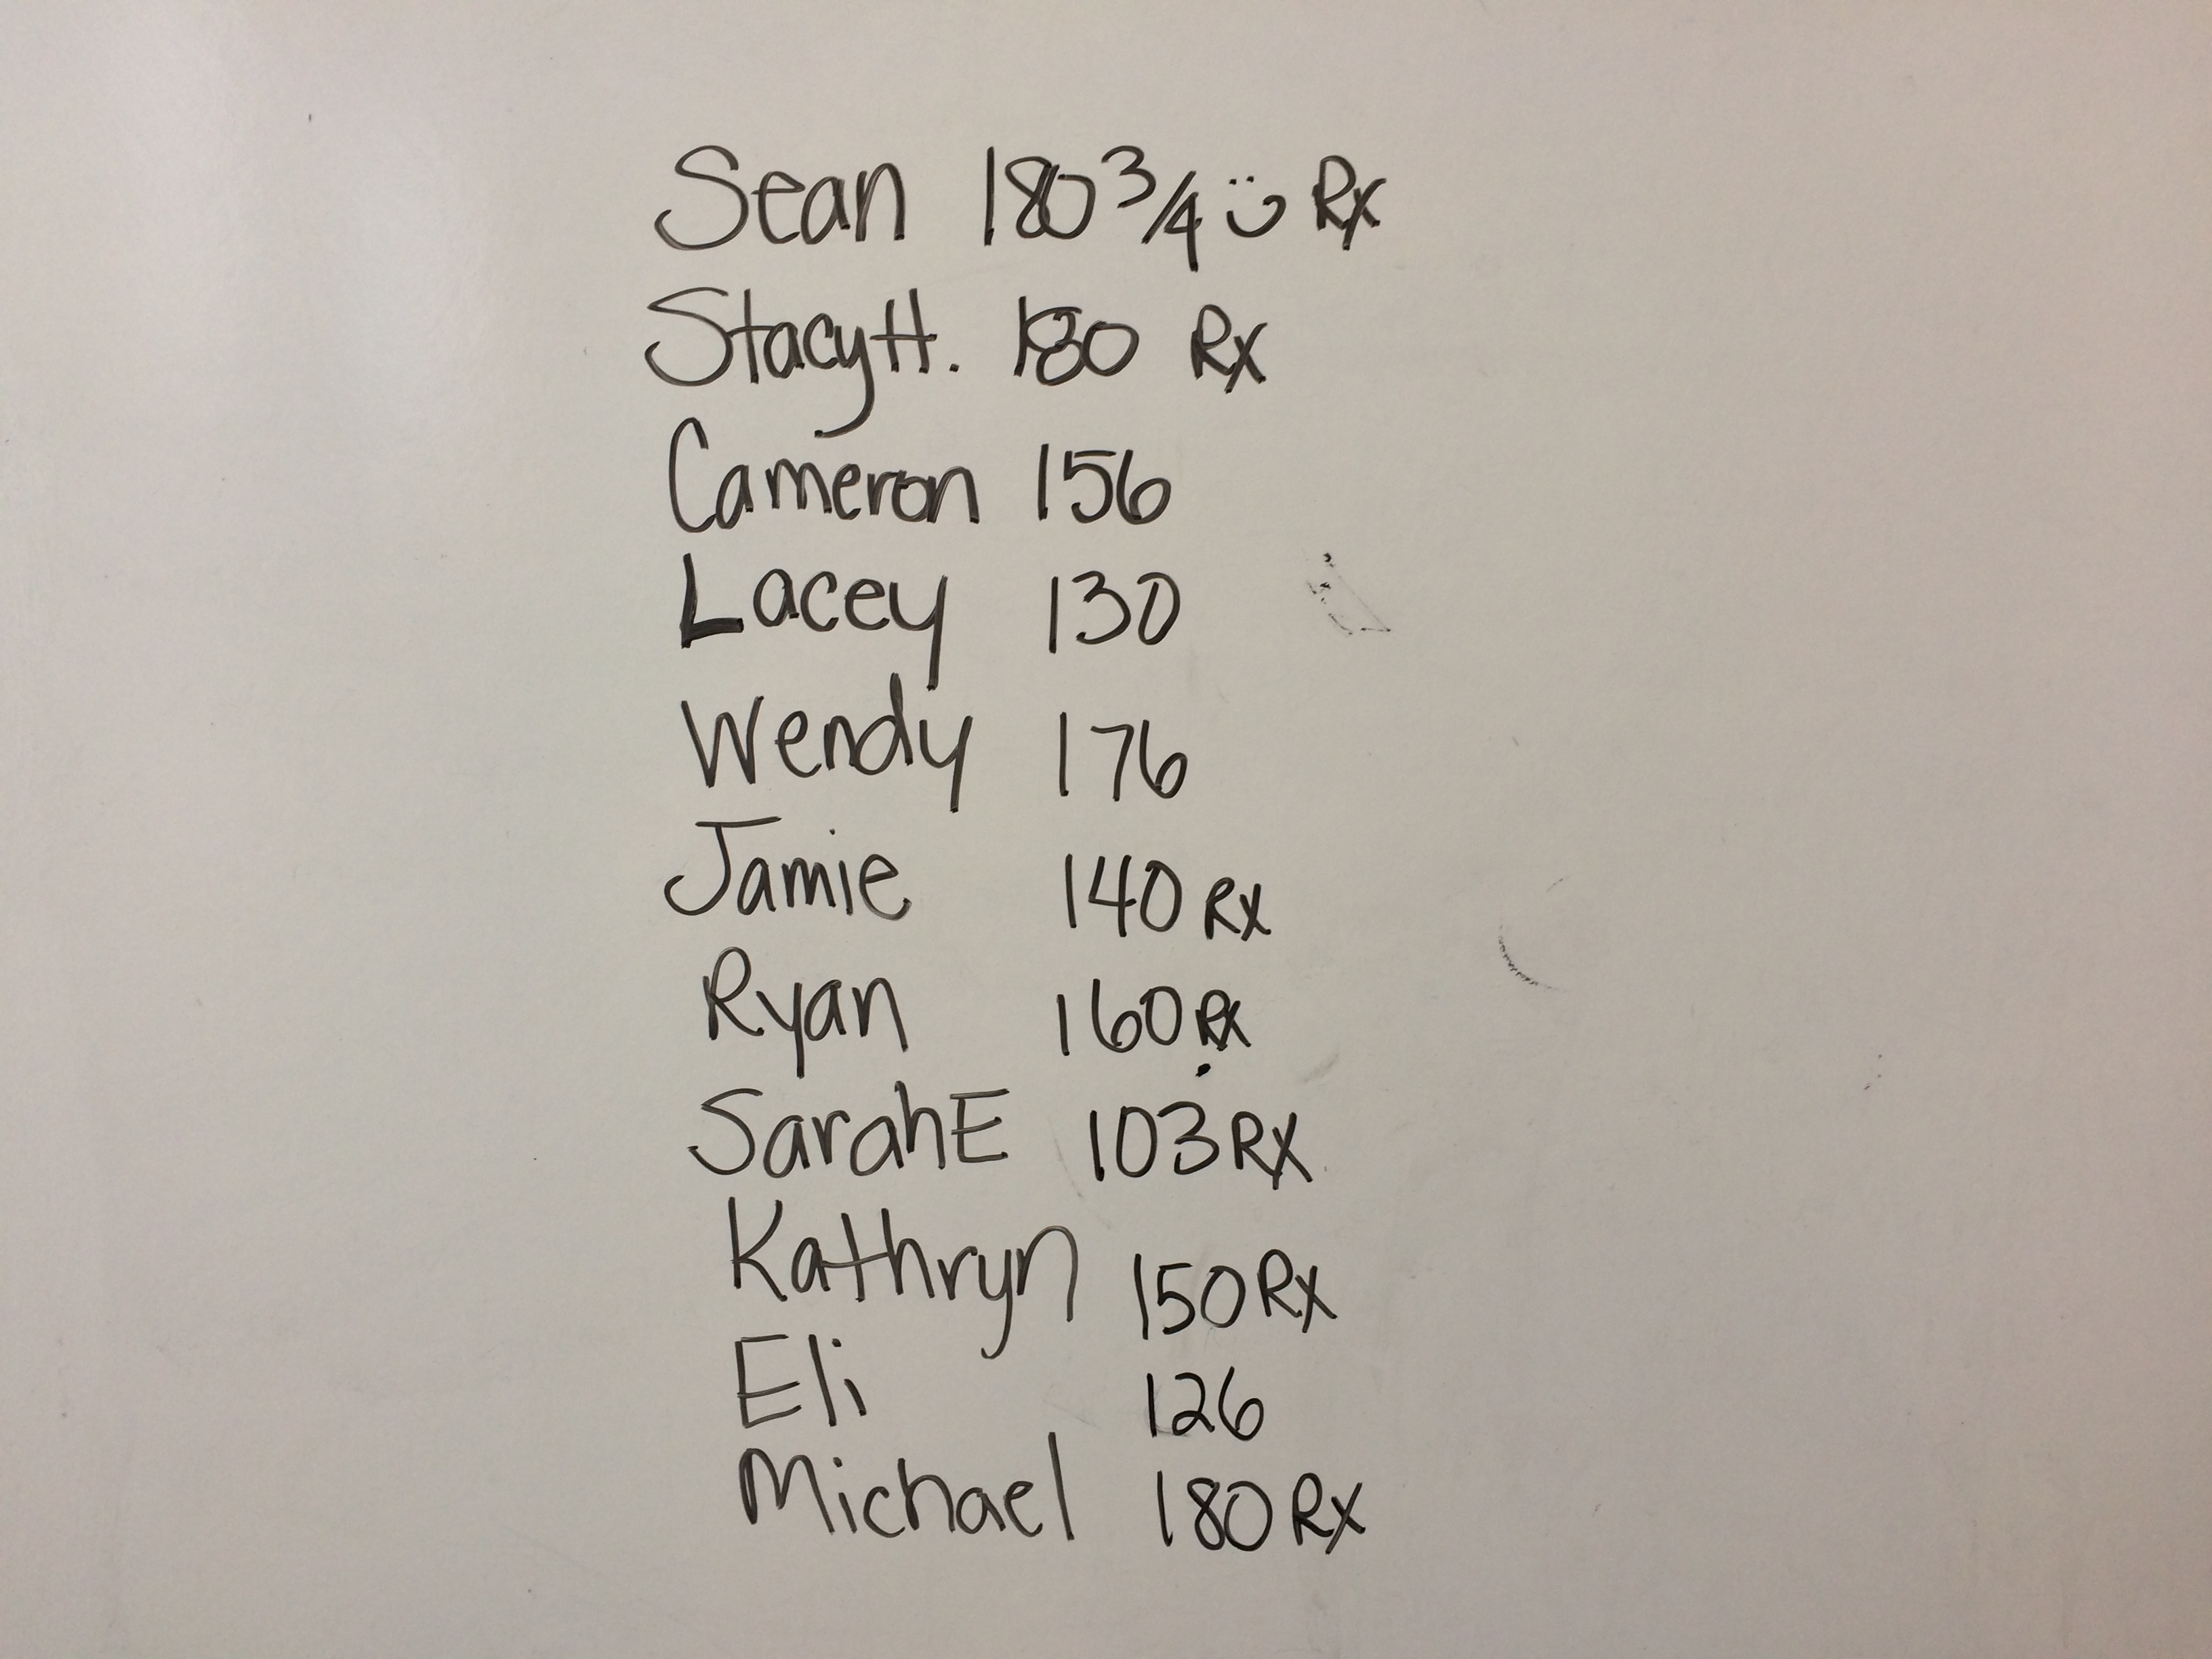 Sean 180 3/4 :) Rx
Stacy H. 180 Rx
Cameron 156
Lacey 130
Wendy 176
Jamie 140 Rx
Ryan 160 Rx
Sarah E 103 Rx
Kathryn 150 Rx
Eli 126
Michael 180 Rx